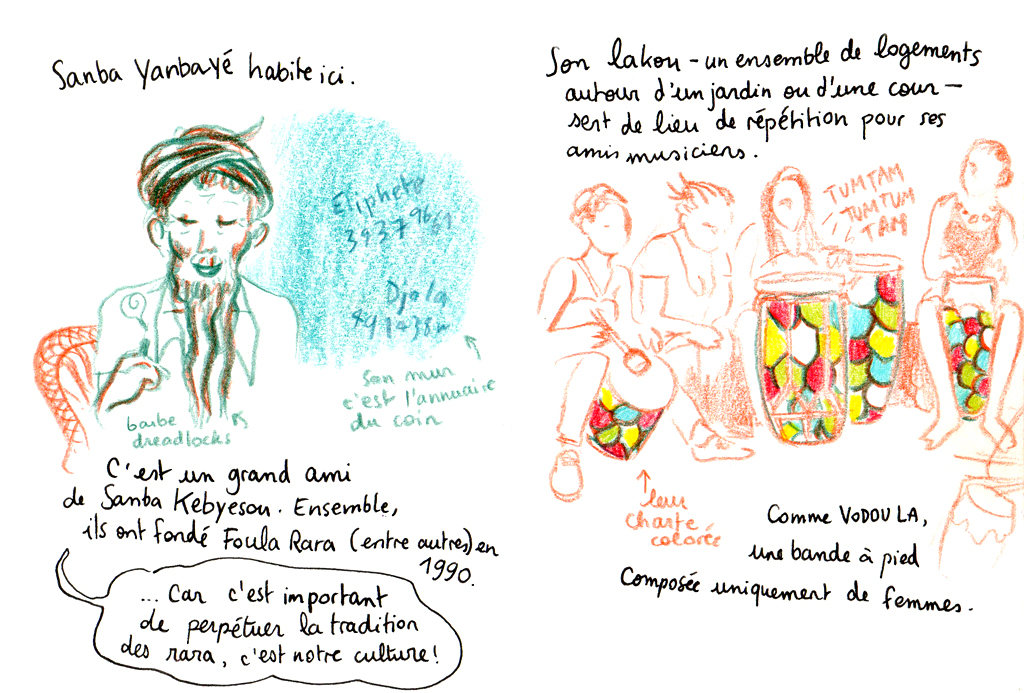 Sanba Yanba-yé habite ici.
Eliphete
39379669
Djola
son mur
c'est l'annuaire
du coin
barbe
dreadlocks
C'est un grand ami
de Sanba Kebyesou. Ensemble,
ils ont fondé Foula Rara (entre autres) en
1990.
... Car c'est important
de perpétuer la tradition
des rara, c'est notre culture!
Son lakou - un ensemble de logements
autour d'un jardin ou d'une cour -
sert de lieu de répétition pour ses
amis musiciens.
TUMTAM
TUMTUM
TAM
leur
charte
colorée
Comme VODOULA,
une bande à pied
composée uniquement de femmes.